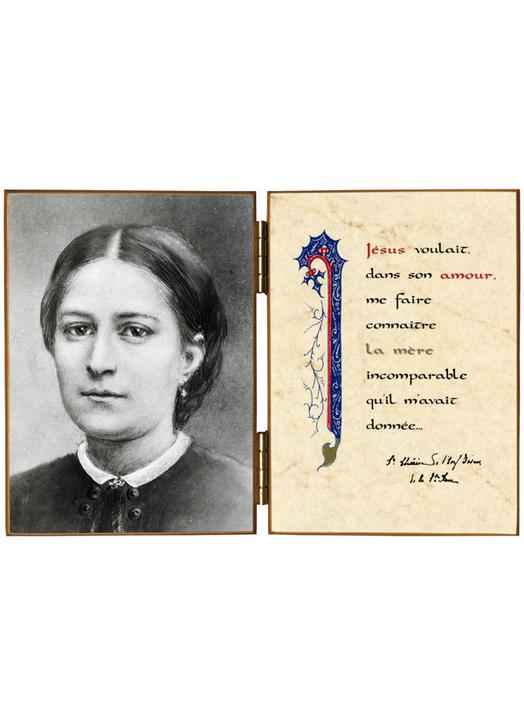 Jésus voulait,
dans son amour,
me faire
connaître
la mère
incomparable
qu'il m'avait
donnée...
Thérèse